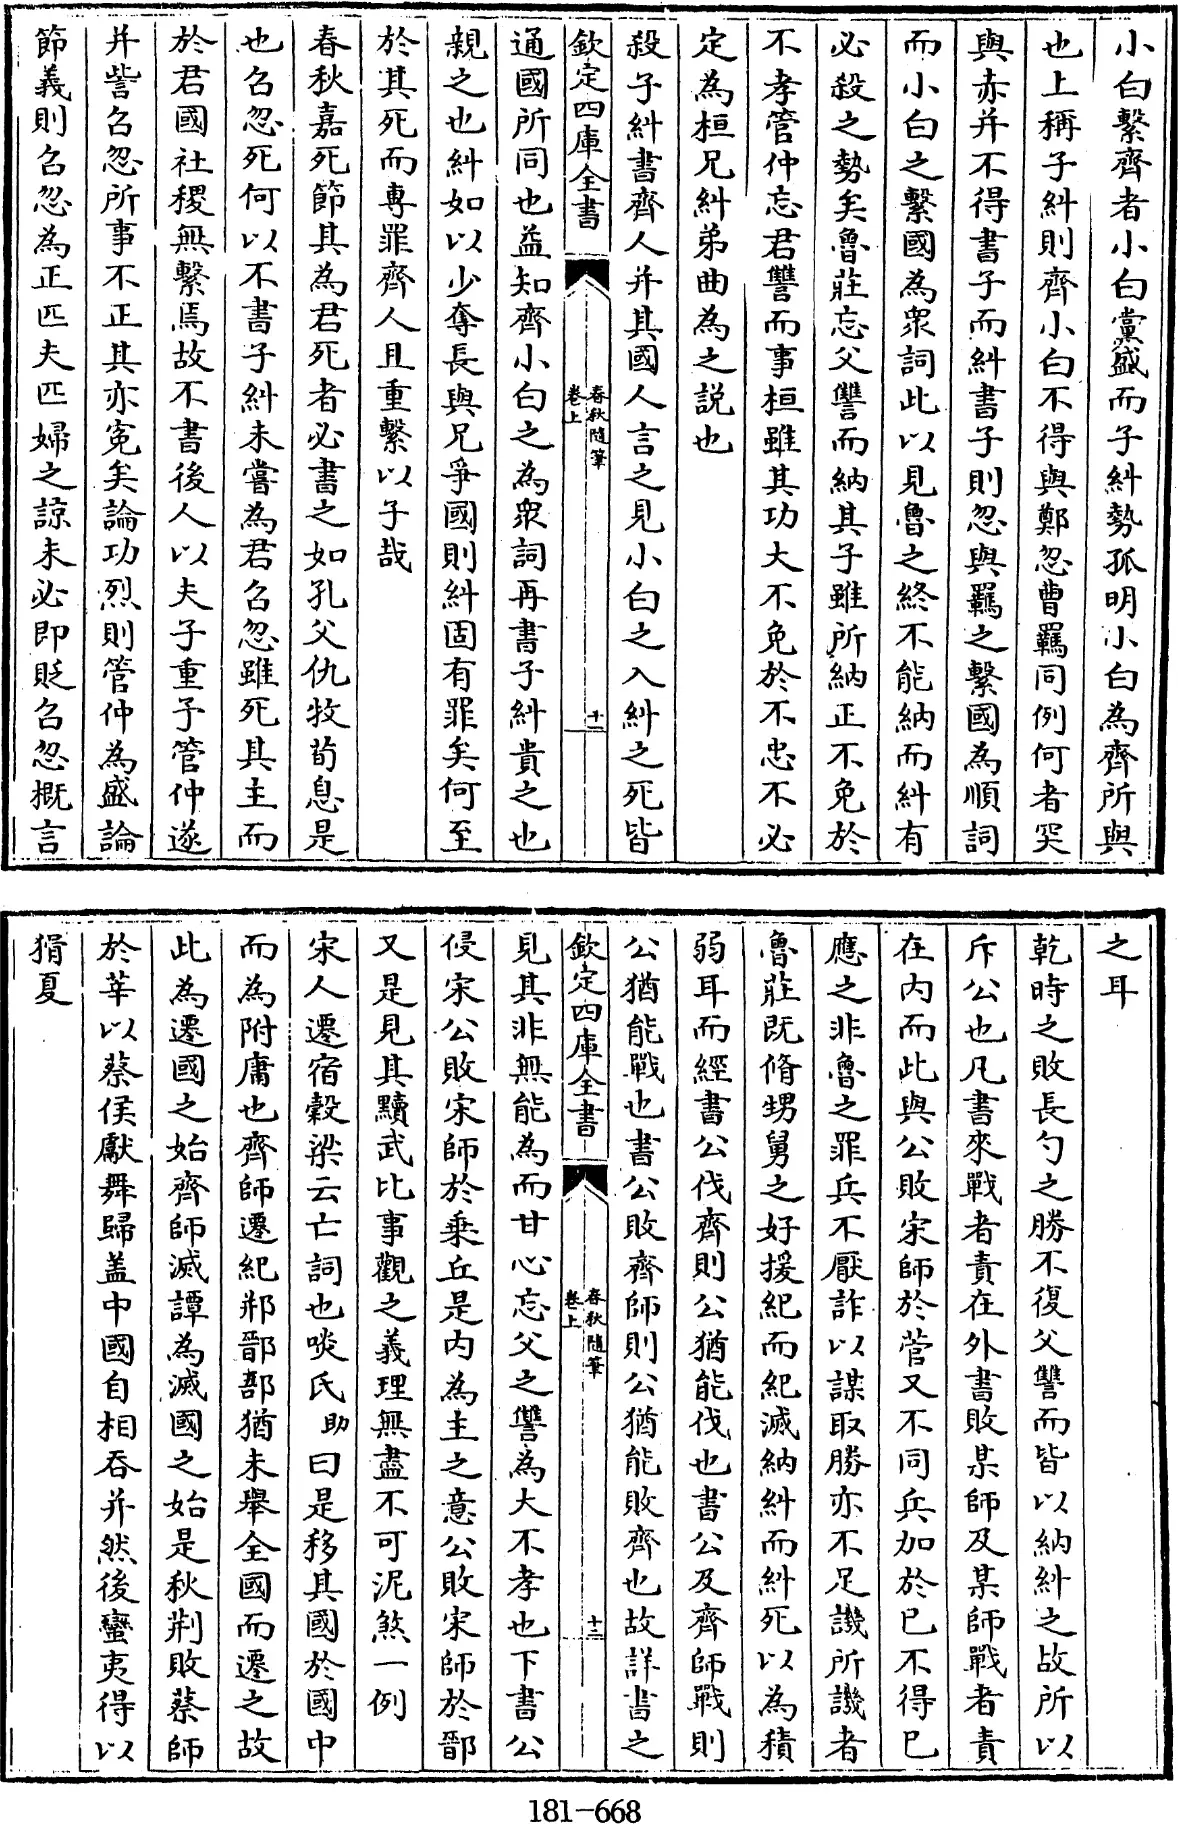 小白繫齊者小白黨盛而子糾勢孤明小白為齊所與
也上稱子糾則齊小白不得與鄭忽曹羈同例何者突
與赤并不得書子而糾書子則忽與羈之繫國為順詞
而小白之繫國為衆詞此以見魯之終不能納而糾有
必殺之勢矣魯莊忘父讐而納其子雖所納正不免於
不孝管仲忘君讐而事桓雖其功大不免於不忠不必
定為桓兄糾弟曲為之説也
殺子糾書齊人并其國人言之見小白之入糾之死皆
欽定四庫全書
春秋隨筆
卷上
十一
通國所同也益知齊小白之為衆詞再書子糾貴之也
親之也糾如以少奪長與兄爭國則糾固有罪矣何至
於其死而専罪齊人且重繫以子哉
春秋嘉死節其為君死者必書之如孔父仇牧荀息是
也召忽死何以不書子糾未嘗為君召忽雖死其主而
於君國社稷無繫焉故不書後人以夫子重予管仲遂
并訾召忽所事不正其亦寃矣論功烈則管仲為盛論
節義則召忽為正匹夫匹婦之諒未必即貶召忽概言
之耳
乾時之敗長勺之勝不復父讐而皆以納糾之故所以
斥公也凡書來戰者責在外書敗某師及某師戰者責
在内而此與公敗宋師於菅又不同兵加於已不得已
應之非魯之罪兵不厭詐以謀取勝亦不足譏所譏者
魯莊既脩甥舅之好援紀而紀滅納糾而糾死以為積
弱耳而經書公伐齊則公猶能伐也書公及齊師戰則
公猶能戰也書公敗齊師則公猶能敗齊也故詳書之
欽定四庫全書
春秋隨筆
卷上
十二
見其非無能為而甘心忘父之讐為大不孝也下書公
侵宋公敗宋師於乗丘是内為主之意公敗宋師於鄑
又是見其黷武比事觀之義理無盡不可泥煞一例
宋人遷宿穀梁云亡詞也啖氏助曰是移其國於國中
而為附庸也齊師遷紀郱鄑郚猶未舉全國而遷之故
此為遷國之始齊師滅譚為滅國之始是秋荆敗蔡師
於莘以蔡侯獻舞歸盖中國自相吞并然後蠻夷得以
猾夏
181-668